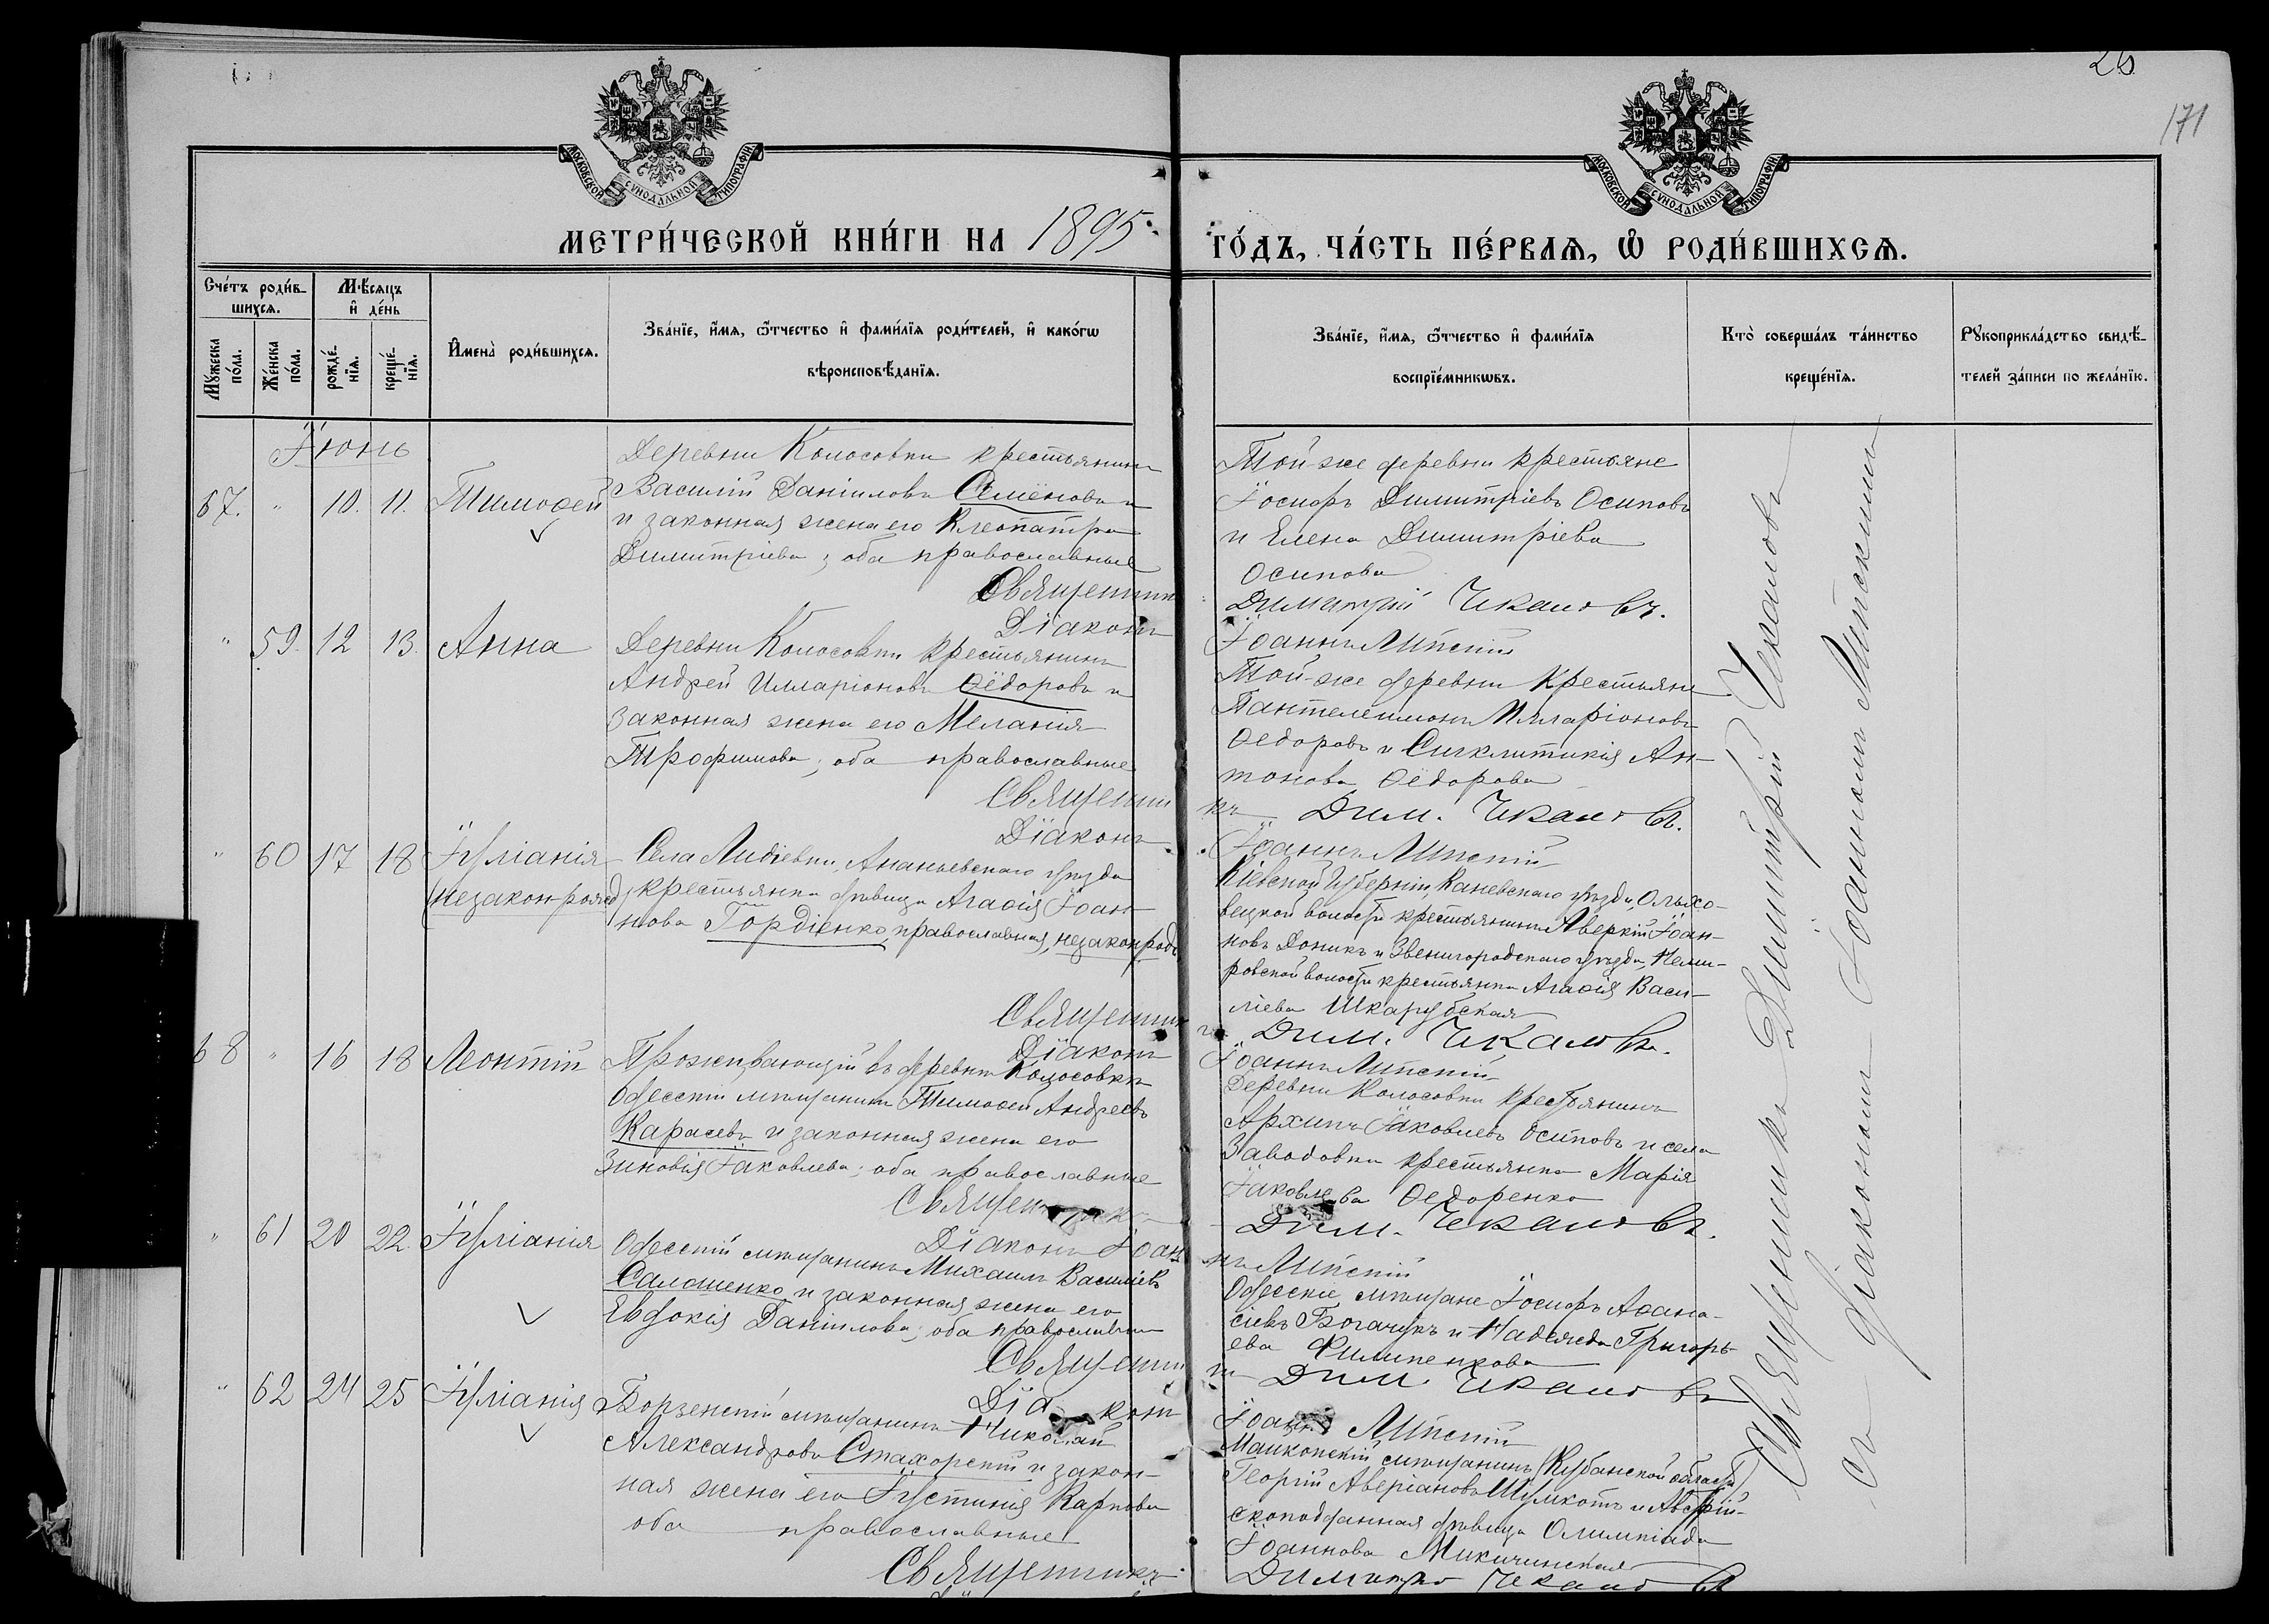 26
171
МОСКОВСКОЙ СѴНОДАЛЬНОЙ ТИПОГРАФІИ
МОСКОВСКОЙ СѴНОДАЛЬНОЙ ТИПОГРАФІИ
МЕТРИ́ЧЕСКОЙ КНИ́ГИ НА 1895
ГО́ДЪ, ЧА́СТЬ ПЕ́РВАѦ, Ѡ РОДИ́ВШИХСѦ.
Сче́тъ роди́в-
шихсѧ.
Мѣ́сѧцъ
и де́нь
Мꙋ́жеска
по́ла.
Же́нска
по́ла.
рожде́-
нїѧ.
креще́-
нїѧ.
Имена̀ роди́вшихсѧ.
Зва́нїе, и́мѧ, ѻ҆́тчество и фами́лїѧ роди́телей, и како́гѡ
вѣроисповѣ́данїѧ.
Зва́нїе, и́мѧ, ѻ҆́тчество и фами́лїѧ
воспрїе́мникѡвъ.
Кто̀ соверша́лъ та́инство
креще́нїѧ.
Рꙋкоприкла́дство свидѣ́-
телей за́писи по жела́нїю.
Іюнь
67. " 10. 11. Тимоѳей
Деревни Колосовки крестьянинъ
Василій Даніиловъ Семёновъ и
и законная жена его Клеопатра
Димитріева; оба православные
Той-же деревни крестьяне
Іосифъ Димитріевъ Осиповъ
и Елена Димитріева
Осипова
Священникъ Димитрій Чкаловъ.
Діаконъ Іоаннъ Липскій
" 59. 12 13. Анна
Деревни Колосовки крестьянинъ
Андрей Илларіоновъ Ѳёдоровъ и
законная жена его Меланія
Трофимова; оба православные
Той-же деревни крестьяне
Пантелеимонъ Илларіоновъ
Ѳедоровъ и Синклитикія Ан-
тонова Ѳёдорова
Священникъ Дим. Чкаловъ.
Діаконъ Іоаннъ Липскій
" 60 17 18 Іуліанія
(незакон-рожд)
Села Лидіевки, Ананьевскаго уѣзда
крестьянка дѣвица Агаѳія Іоан-
нова Гордіенко, православная, незаконрожд.
Кіевской Губерніи, Каневскаго уѣзда, Ольхо-
вецкой волости крестьянинъ Аверкій Іоан-
новъ Доникъ и Звенигородскаго уѣзда, Неми-
ровской волости крестьянка Агаѳія Васи-
ліева Шкарубская
Священникъ Дим. Чкаловъ.
Діаконъ Іоаннъ Липскій
68 " 16 18 Леонтій
Проживающій въ деревнѣ Колосовкѣ
Одесскій мѣщанинъ Тимоѳей Андреевъ
Карасевъ и законная жена его
Зиновія Іаковлева; оба православные
Деревни Колосовки крестьянинъ
Архипъ Іаковлевъ Осиповъ и села
Заводовки крестьянка Марія
Іаковлева Ѳедоренко
Священникъ Дим. Чкаловъ.
Діаконъ Іоаннъ Липскій
" 61 20 22. Іуліанія
Одесскій мѣщанинъ Михаилъ Василіевъ
Саломенко и законная жена его
Евдокія Даніилова; оба православные
Одесскіе мѣщане Іосифъ Аѳана-
сіевъ Богачукъ и Надежда Григорь-
ева Филипенкова
Священникъ Дим. Чкаловъ
Діаконъ Іоаннъ Липскій
" 62 24 25 Іуліанія
Борзенскій мѣщанинъ Николай
Александровъ Стахорскій и закон-
ная жена его Іустинія Карпова
оба православные
Майкопскій мѣщанинъ (Кубанской области)
Георгій Аверіановъ Шумкотъ и Австрій-
скоподданная дѣвица Олимпіада
Іоаннова Микичинская
Священникъ Димитрій Чкаловъ
Священникъ Димитрій Чкаловъ
съ діакономъ Іоанномъ Липскимъ